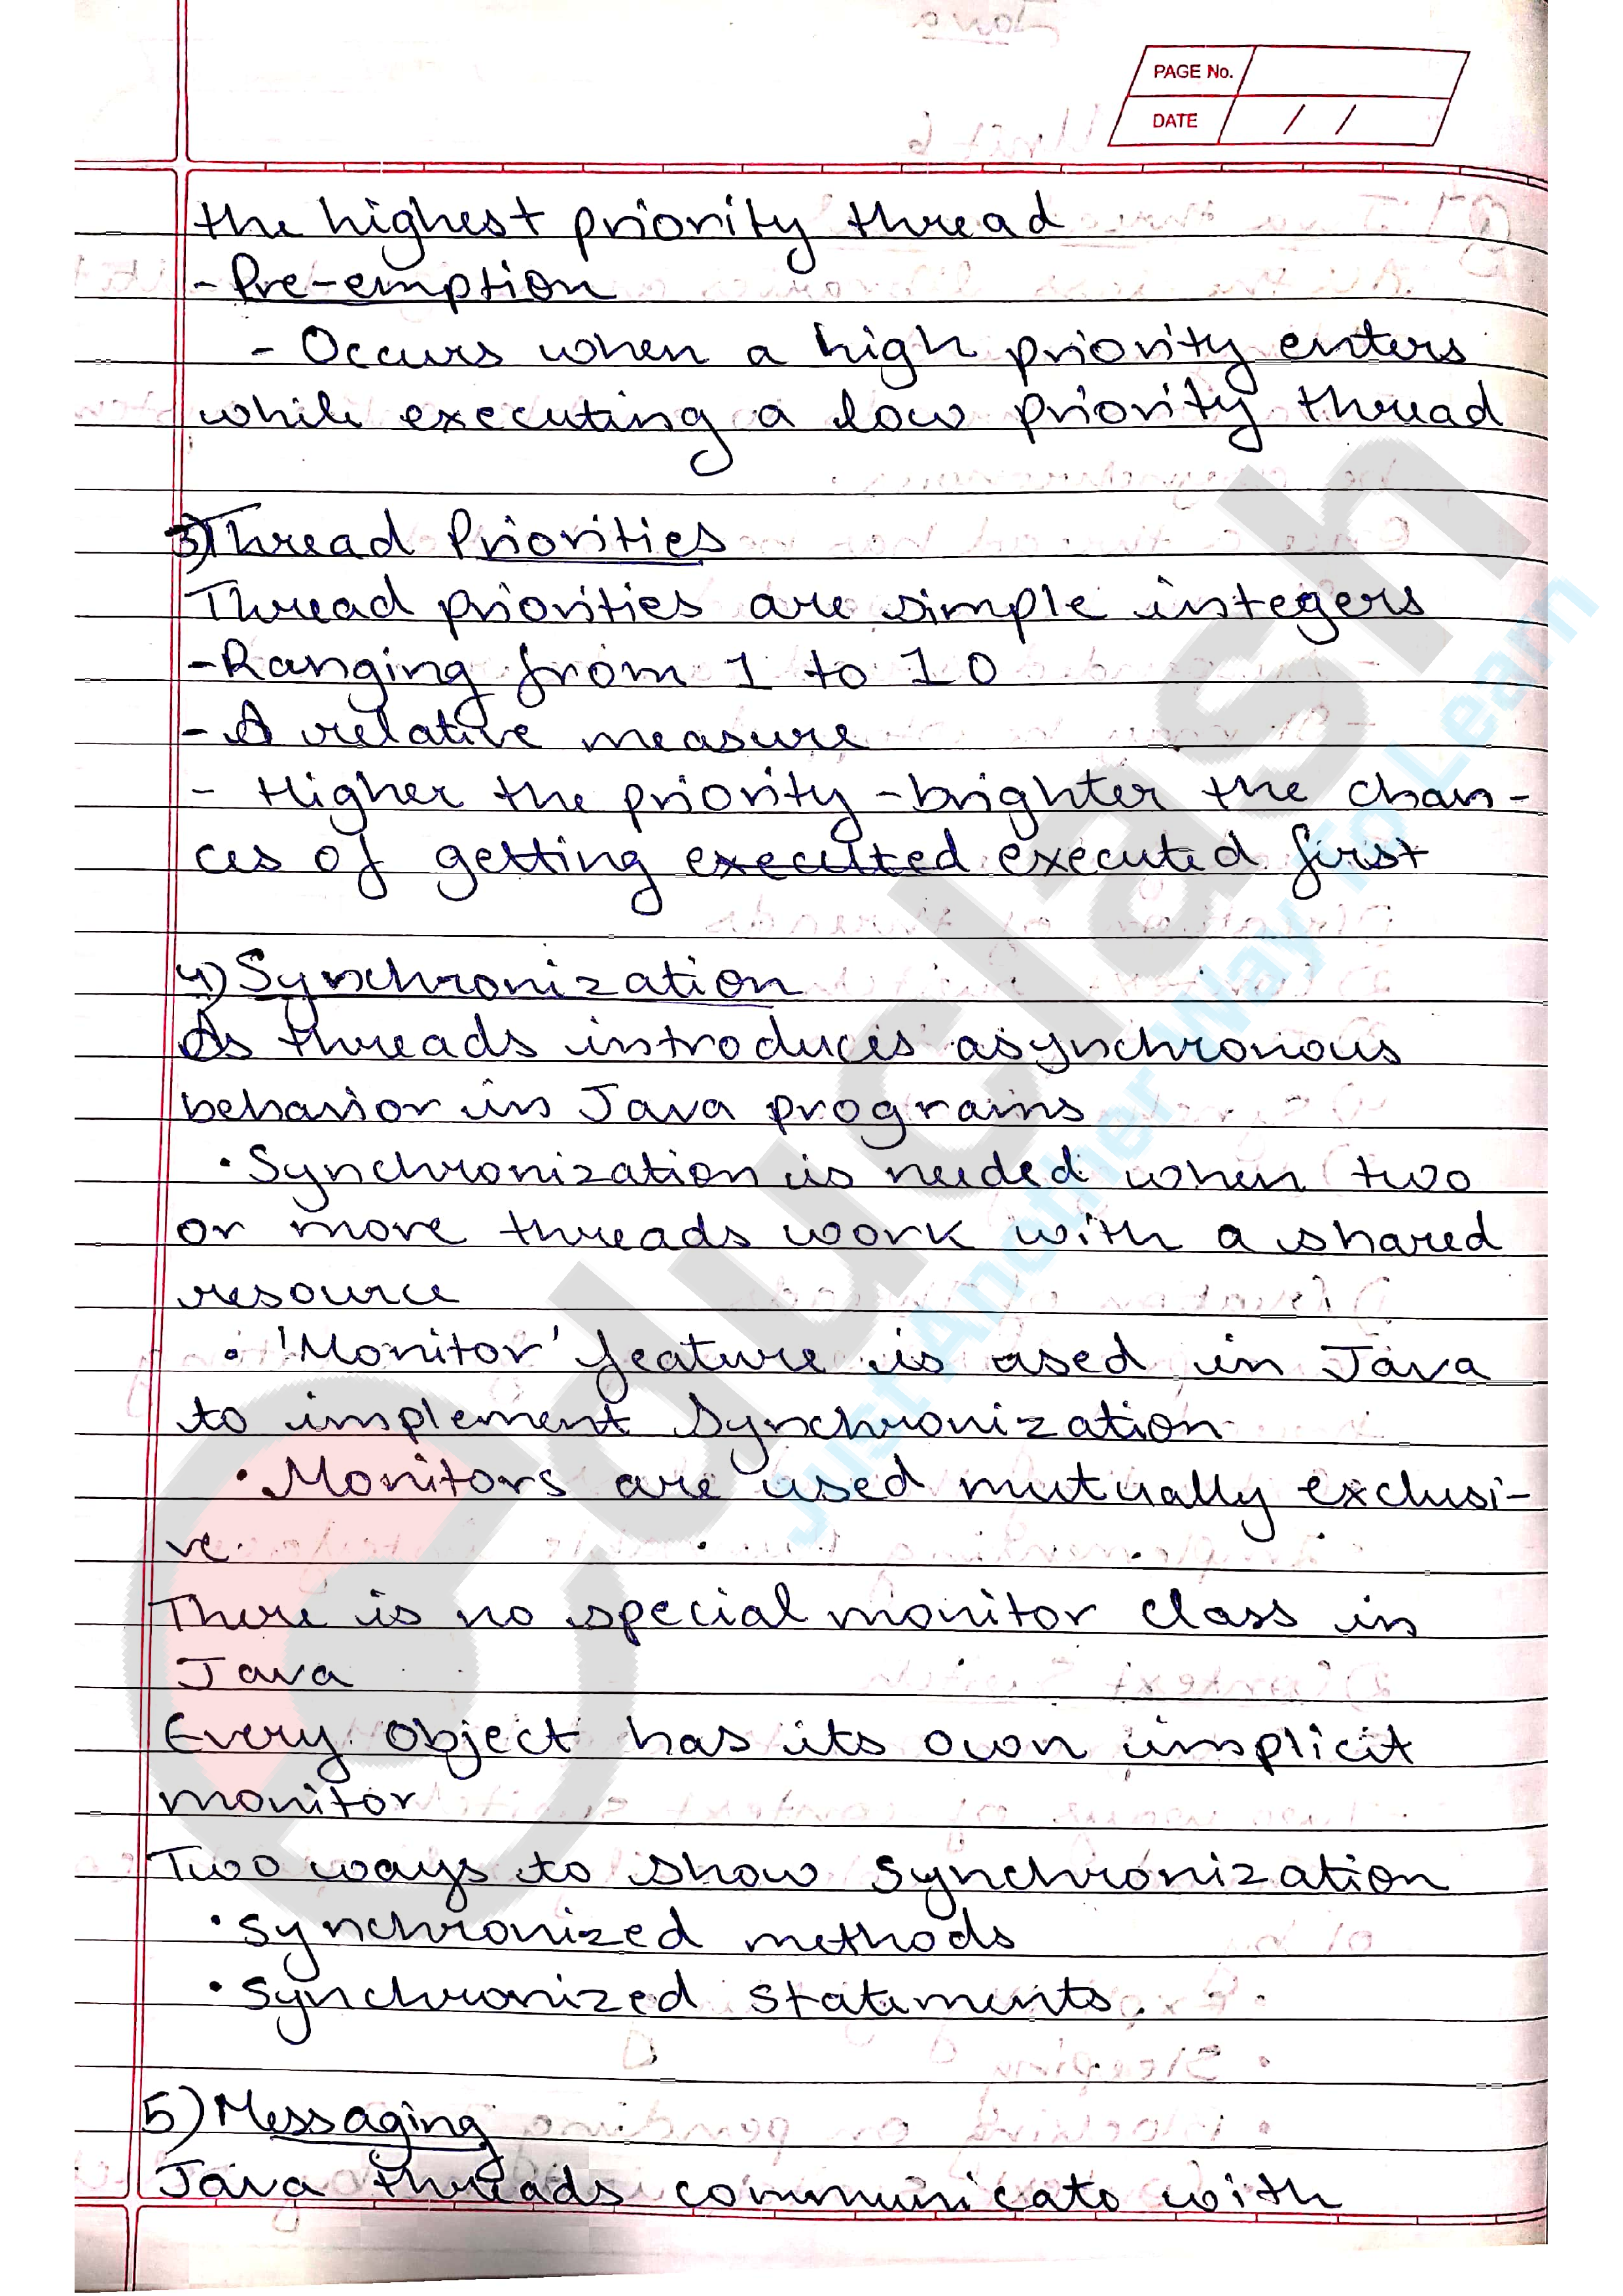 PAGE No.
DATE / /
the highest priority thread
- Pre-emption
- Occurs when a high priority enters
while executing a low priority thread
3) Thread Priorities
Thread priorities are simple integers
- Ranging from 1 to 10
- A relative measure
- Higher the priority - brighter the chan-
ces of getting executed executed first
4) Synchronization
As threads introduces asynchronous
behavior in Java programs
• Synchronization is needed when two
or more threads work with a shared
resource
• 'Monitor' feature is used in Java
to implement Synchronization
• Monitors are used mutually exclusi-
ve.
There is no special monitor class in
Java
Every object has its own implicit
monitor
Two ways to show synchronization
• synchronized methods
• synchronized statements.
5) Messaging
Java threads communicate with
educlash
Just Another Way To Learn